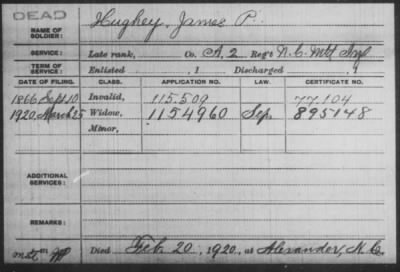 DEAD
NAME OF SOLDIER: Hughey, James P.
SERVICE: Late rank, Co. A, 2 Reg't N.C. Mtd Inf
TERM OF SERVICE: Enlisted , 1 Discharged , 1
DATE OF FILING. CLASS. APPLICATION NO. LAW. CERTIFICATE NO.
1866 Sept 10 Invalid, 115.509 77.104
1920, March 25 Widow, 1154960 Sep. 895148
Minor,
ADDITIONAL SERVICES:
REMARKS:
Died Feb. 20, 1920, at Alexander, N.C.